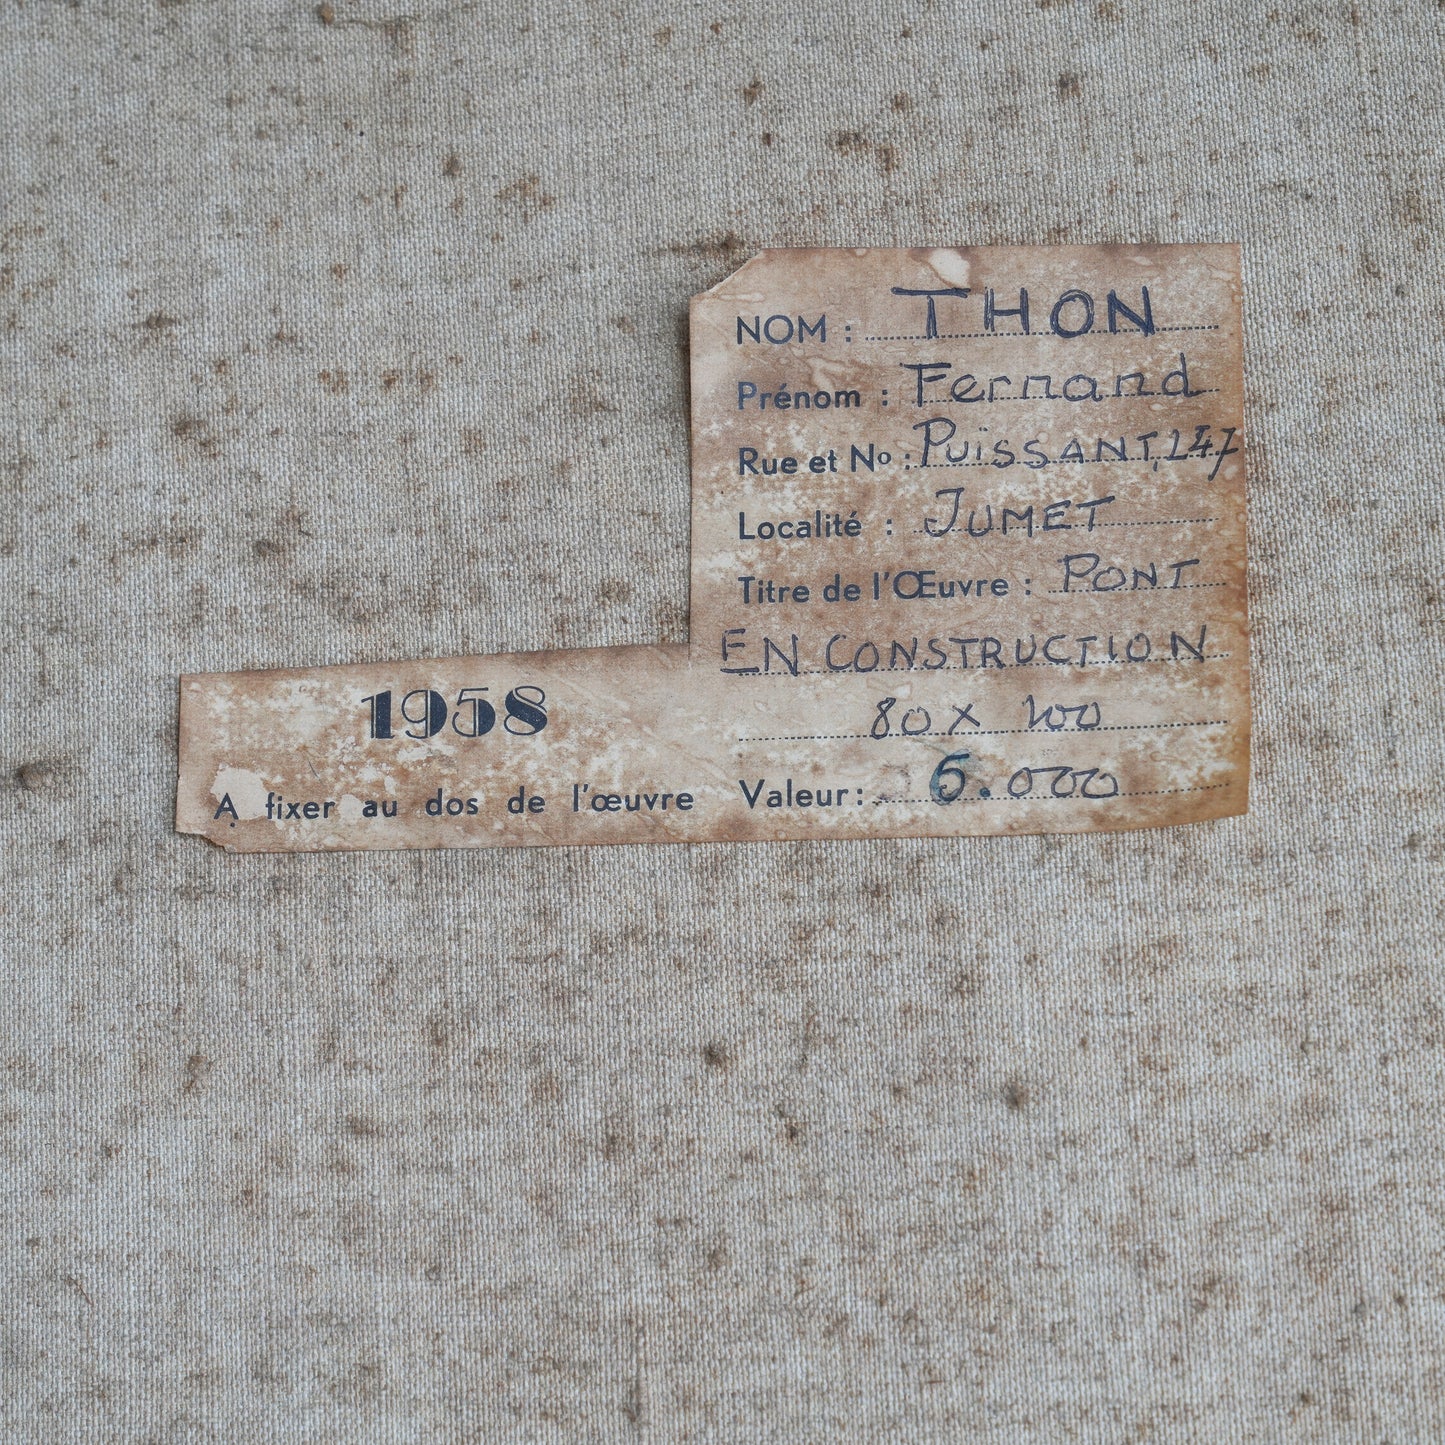 NOM : THON
Prénom : Fernand
Rue et No : PUISSANT, 247
Localité : JUMET
Titre de l'Œuvre : PONT
EN CONSTRUCTION
1958
80 x 100
A fixer au dos de l'œuvre Valeur: 5.000